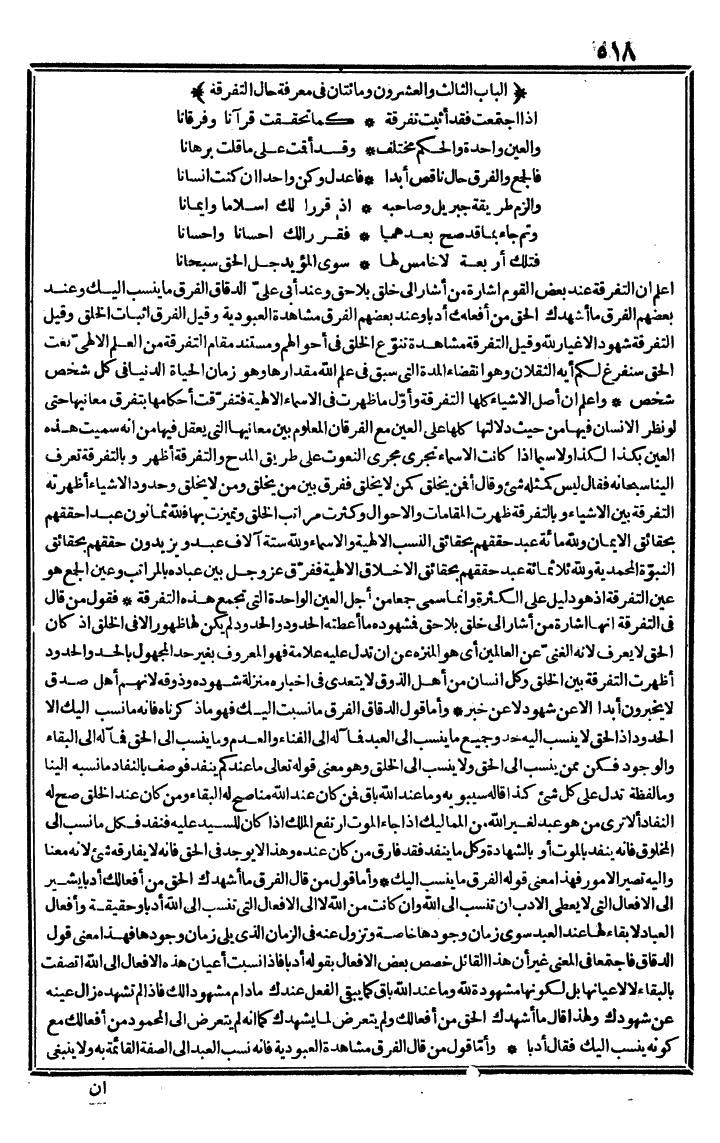 ٥١٨
﴿ الباب الثالث والعشرون ومائتان فى معرفة حال التفرقة ﴾
اذا اجتمعت فقد أثبت تفرقة * كما تحققت قرآنا وفرقانا
والعين واحدة والحكم مختلف * وقد أقت على ماقلت برهانا
فالجع والفرق حال ناقص أبدا * فاعدل وكن واحدا ان كنت انسانا
والزم طريقة جبريل وصاحبه * اذ قررا لك اسلاما وايمانا
وتم جاء بما قد صح بعدهما * فقرر الك احسانا واحسانا
فتلك أربعة لا خامس لها * سوى المؤيد جل الحق سبحانا
اعلم ان التفرقة عند بعض القوم اشارة من أشار الى خلق بلا حق وعند أبى على الدقاق الفرق ما ينسب اليك وعند
بعضهم الفرق ما أشهدك الحق من أفعالك أدبا وعند بعضهم الفرق مشاهدة العبودية وقيل الفرق اثبات الخلق وقيل
التفرقة شهود الاغيار لله وقيل التفرقة مشاهدة تنوّع الخلق فى أحوالهم ومستند مقام التفرقة من العلم الالهىّ نعت
الحق سنفرغ لكم أيه الثقلان وهو انقضاء المدة التى سبق فى علم الله مقدارها وهو زمان الحياة الدنيا فى كل شخص
شخص * واعلم ان أصل الاشياء كلها التفرقة وأوّل ما ظهرت فى الاسماء الالهية فتفرّقت أحكامها بتفرق معانيها حتى
لو نظر الانسان فيها من حيث دلالتها كلها على العين مع الفرقان المعلوم بين معانيها التى يعقل فيها من انه سميت هذه
العين بكذا لكذا ولا سيما اذا كانت الاسماء تجرى مجرى النعوت على طريق المدح والتفرقة أظهر وبالتفرقة تعرف
الينا سبحانه فقال ليس كمثله شئ وقال أفمن يخلق كمن لا يخلق ففرق بين من يخلق ومن لا يخلق وحدود الاشياء أظهرته
التفرقة بين الاشياء وبالتفرقة ظهرت المقامات والاحوال وكثرت مراتب الخلق وتميزت بها فلله ثمانون عبدا حققهم
بحقائق الايمان ولله مائة عبد حققهم بحقائق النسب الالهية والاسماء ولله ستة آلاف عبد ويزيدون حققهم بحقائق
النبوّة المحمدية ولله ثلاثمائة عبد حققهم بحقائق الاخلاق الالهية ففرّق عز وجل بين عباده بالمراتب وعين الجع هو
عين التفرقة اذ هو دليل على الكثرة وانما سمى جعا من أجل العين الواحدة التى تجمع هذه التفرقة * فقول من قال
فى التفرقة انها اشارة من أشار الى خلق بلا حق فشهوده ما أعطته الحدود والحدود لم يكن لها ظهور الا فى الخلق اذ كان
الحق لا يعرف لانه الغنىّ عن العالمين أى هو المنزه عن ان تدل عليه علامة فهو المعروف بغير حد المجهول بالحد والحدود
أظهرت التفرقة بين الخلق وكل انسان من أهل الذوق لا يتعدى فى اخباره منزلة شهوده وذوقه لانهم أهل صدق
لا يخبرون أبدا الا عن شهود لا عن خبر * وأما قول الدقاق الفرق ما نسبت اليك فهو ما ذكرناه فانه ما نسب اليك الا
الحدود اذا الحق لا ينسب اليه حد وجميع ما ينسب الى العبد فآله الى الفناء والعدم وما ينسب الى الحق فآله الى البقاء
والوجود فكن ممن ينسب الى الحق ولا ينسب الى الخلق وهو معنى قوله تعالى ما عندكم ينفد فوصف بالنفاد ما نسبه الينا
وما لفظة تدل على كل شئ كذا قاله سيبويه وما عند الله باق فمن كان عند الله منا صح له البقاء ومن كان عند الخلق صح له
النفاد ألا ترى من هو عبد لغير الله من المماليك اذا جاء الموت ارتفع الملك اذا كان للسيد عليه فنفد فكل ما نسب الى
المخلوق فانه ينفد بالموت أو بالشهادة وكل ما ينفد فقد فارق من كان عنده وهذا لا يوجد فى الحق فانه لا يفارقه شئ لانه معنا
واليه تصير الامور فهذا معنى قوله الفرق ما ينسب اليك * وأما قول من قال الفرق ما أشهدك الحق من أفعالك أدبا يشير
الى الافعال التى لا يعطى الادب ان تنسب الى الله وان كانت من الله لا الى الافعال التى تنسب الى الله أدبا وحقيقة وأفعال
العباد لا بقاء لها عند العبد سوى زمان وجودها خاصة وتزول عنه فى الزمان الذى يلى زمان وجودها فهذا معنى قول
الدقاق فاجتمعا فى المعنى غير أن هذا القائل خصص بعض الافعال بقوله أدبا فاذا نسبت أعيان هذه الافعال الى الله اتصفت
بالبقاء لا لاعيانها بل لكونها مشهودة لله وما عند الله باق كما يبقى الفعل عندك ما دام مشهودا لك فاذا لم تشهده زال عينه
عن شهودك ولهذا قال ما أشهدك الحق من أفعالك ولم يتعرض لما يشهدك كما انه لم يتعرض الى المحمود من أفعالك مع
كونه ينسب اليك فقال أدبا * وأمّا قول من قال الفرق مشاهدة العبودية فانه نسب العبد الى الصفة القائمة به ولا ينبغى
ان